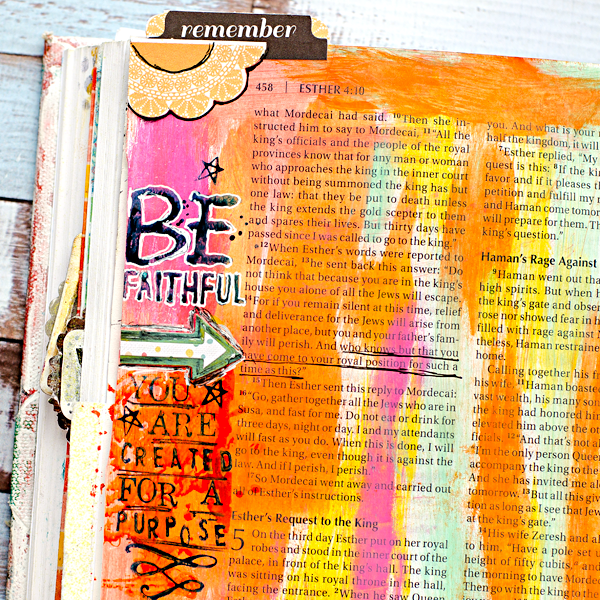 remember
458 | ESTHER 4:10
BE
FAITHFUL
YOU
ARE
CREATED
FOR A
PURPOSE
what Mordecai had said. 10 Then she in-
structed him to say to Mordecai, 11 "All the
king's officials and the people of the royal
provinces know that for any man or woman
who approaches the king in the inner court
without being summoned the king has but
one law: that they be put to death unless
the king extends the gold scepter to them
and spares their lives. But thirty days have
passed since I was called to go to the king."
12 When Esther's words were reported to
Mordecai, 13 he sent back this answer: "Do
not think that because you are in the king's
house you alone of all the Jews will escape.
14 For if you remain silent at this time, relief
and deliverance for the Jews will arise from
another place, but you and your father's fam-
ily will perish. And who knows but that you
have come to your royal position for such a
time as this?"
15 Then Esther sent this reply to Mordecai:
16 "Go, gather together all the Jews who are in
Susa, and fast for me. Do not eat or drink for
three days, night or day. I and my attendants
will fast as you do. When this is done, I will
go to the king, even though it is against the
law. And if I perish, I perish."
17 So Mordecai went away and carried out
all of Esther's instructions.
Esther's Request to the King
5 On the third day Esther put on her royal
robes and stood in the inner court of the
palace, in front of the king's hall. The king
was sitting on his royal throne in the hall,
facing the entrance. 2 When he saw Queen
you. And what is your
half the kingdom, it will
7 Esther replied, "My
quest is this: 8 If the kin
favor and if it pleases th
petition and fulfill my r
and Haman come tomor
will prepare for them. Th
king's question."
Haman's Rage Against
9 Haman went out tha
high spirits. But when h
the king's gate and obser
rose nor showed fear in h
filled with rage against M
theless, Haman restraine
home.
Calling together his fr
his wife, 11 Haman boasted
vast wealth, his many son
the king had honored him
elevated him above the ot
ficials. 12 "And that's not al
the only person Queen
accompany the king to the
And she has invited me al
tomorrow. 13 But all this giv
tion as long as I see that Jew
at the king's gate."
14 His wife Zeresh and al
to him, "Have a pole set u
height of fifty cubits, and
the morning to have Morde
Then go with the king to th